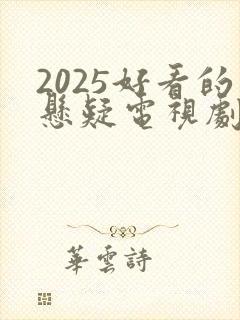 2025好看的
懸疑電視劇
華雲詩